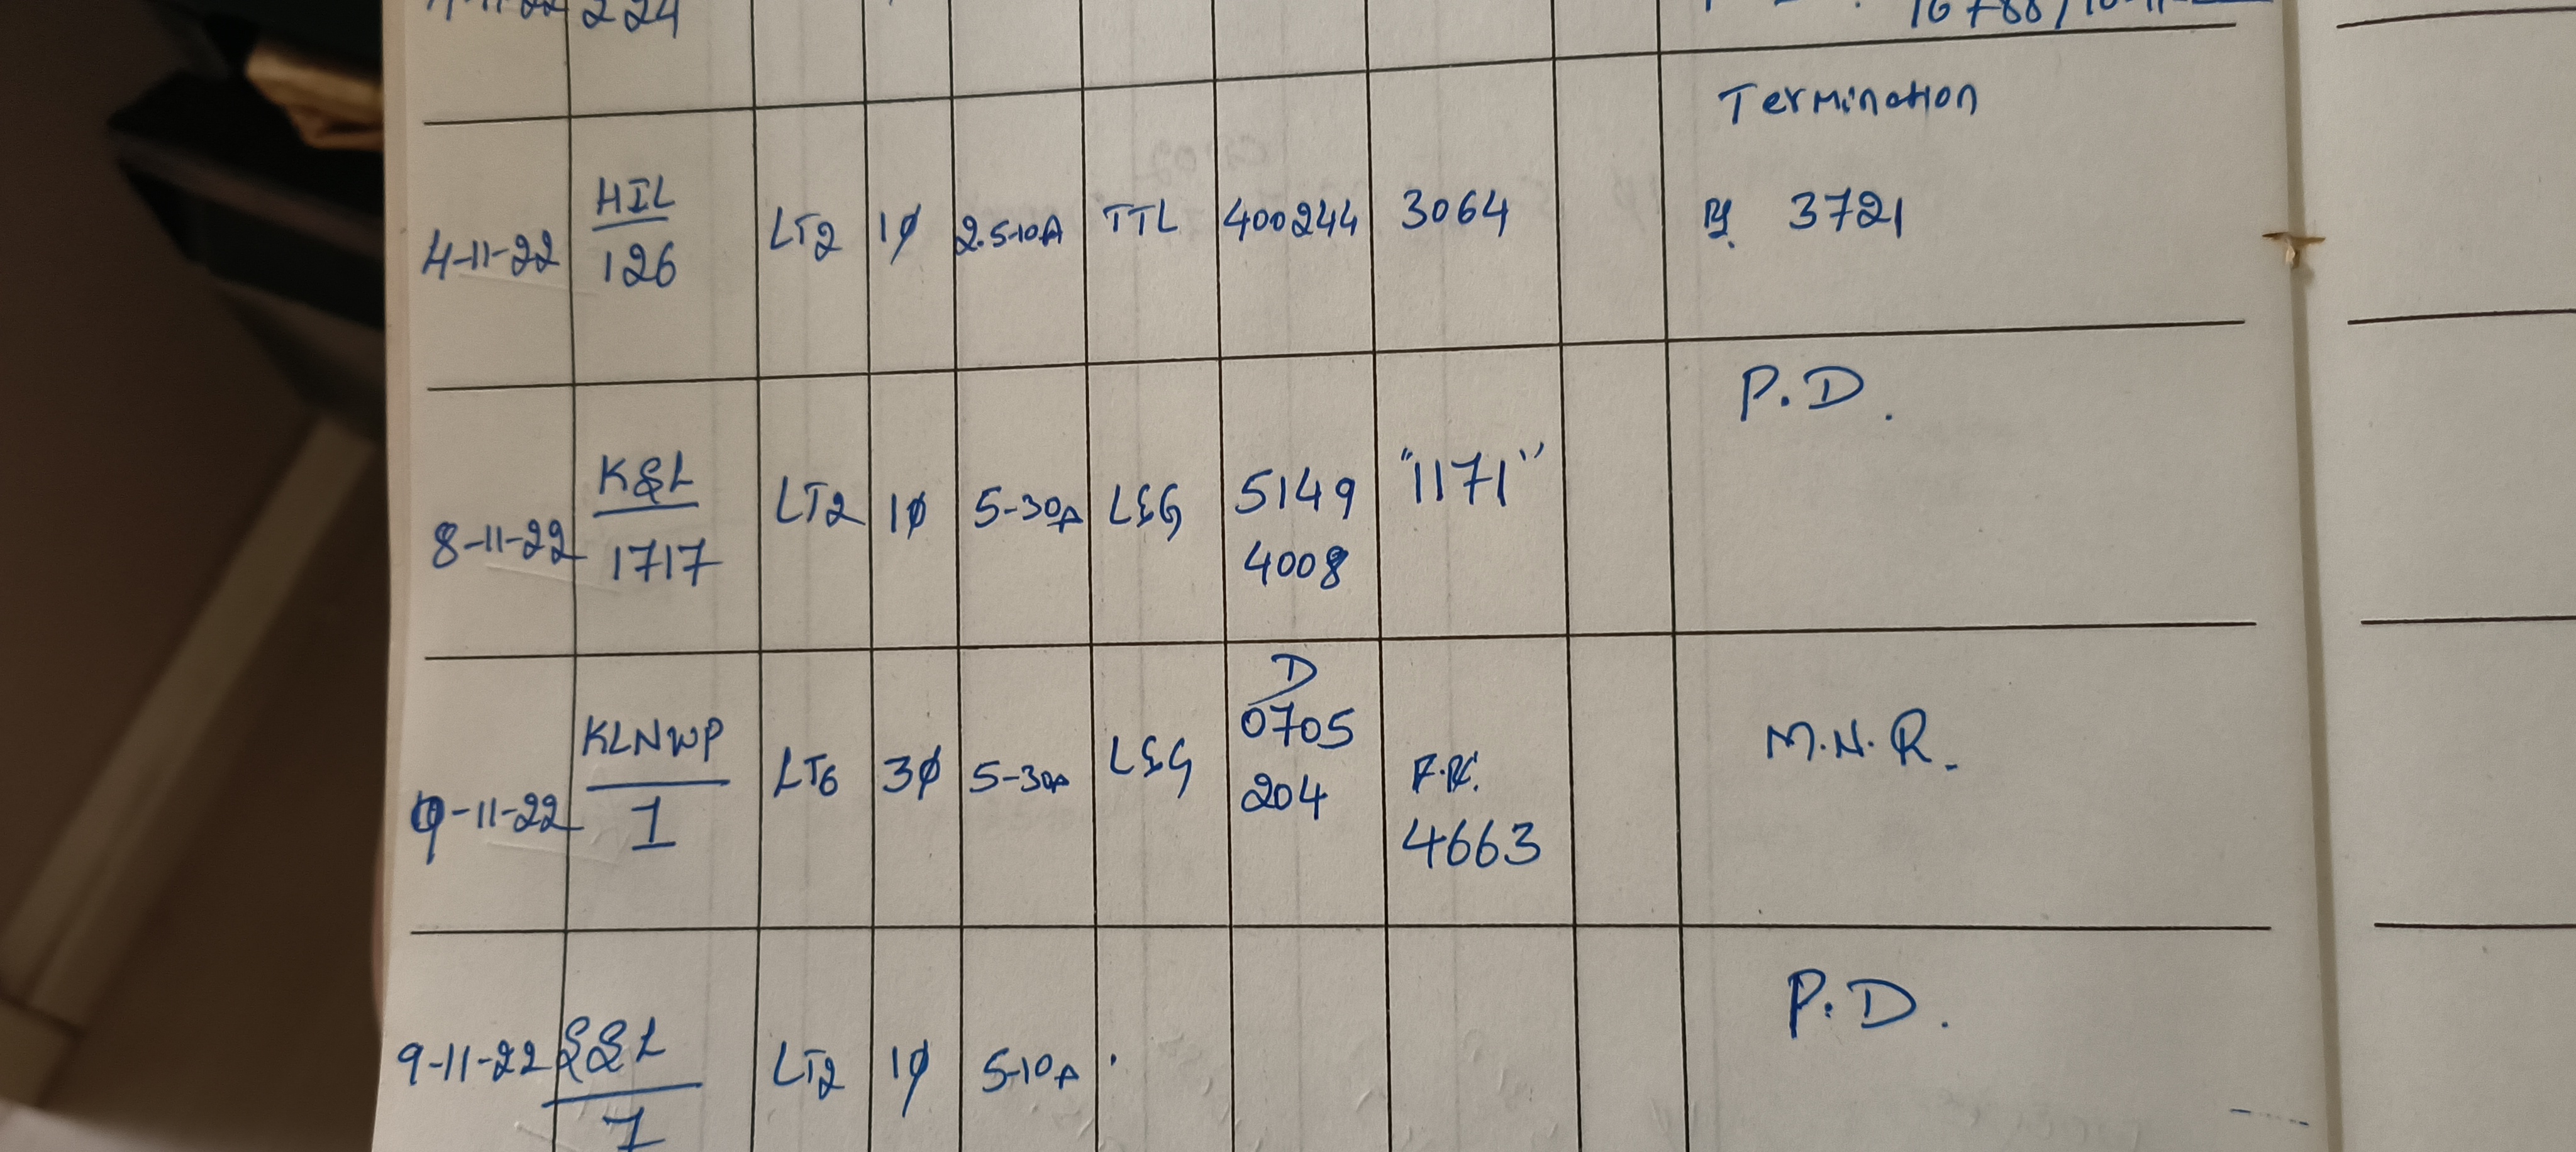 4-11-22 224
Termination
HIL
4-11-22 126 LT2 1ø 2.5-10A TTL 400244 3064 3721
P.D.
K&L
8-11-22 1717 LT2 1ø 5-30A L&G 5149 "1171"
4008
D
KLNWP 0705 M.N.R.
9-11-22 1 LT6 3ø 5-30A L&G 204 F.R.
4663
P.D.
9-11-22 LT2 1ø 5-10A
1